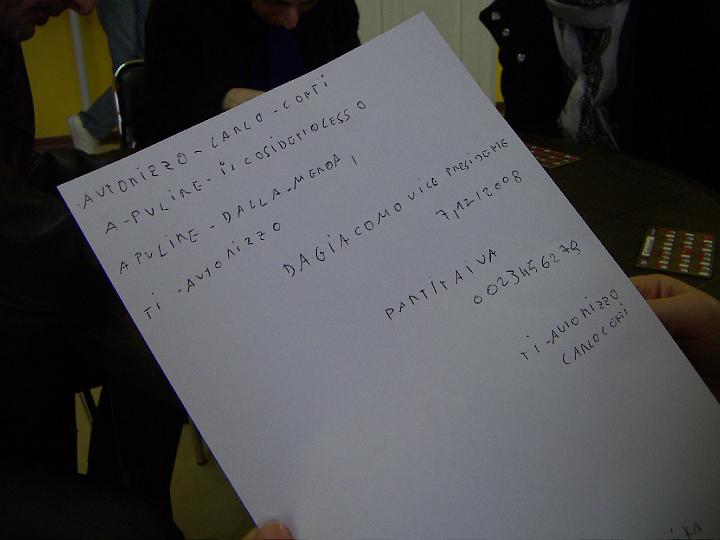 AUTORIZZO - CARLO - CONTI
A - PULIRE - IL COSIDETTOLESSO
APULIRE - DALLA - MERDA !
TI - AUTORIZZO
DAGIACOMO VICE PRESIDEME
7,12,2008
PARTITAIVA
0023456279
TI - AUTORIZZO
CARLOCONTI